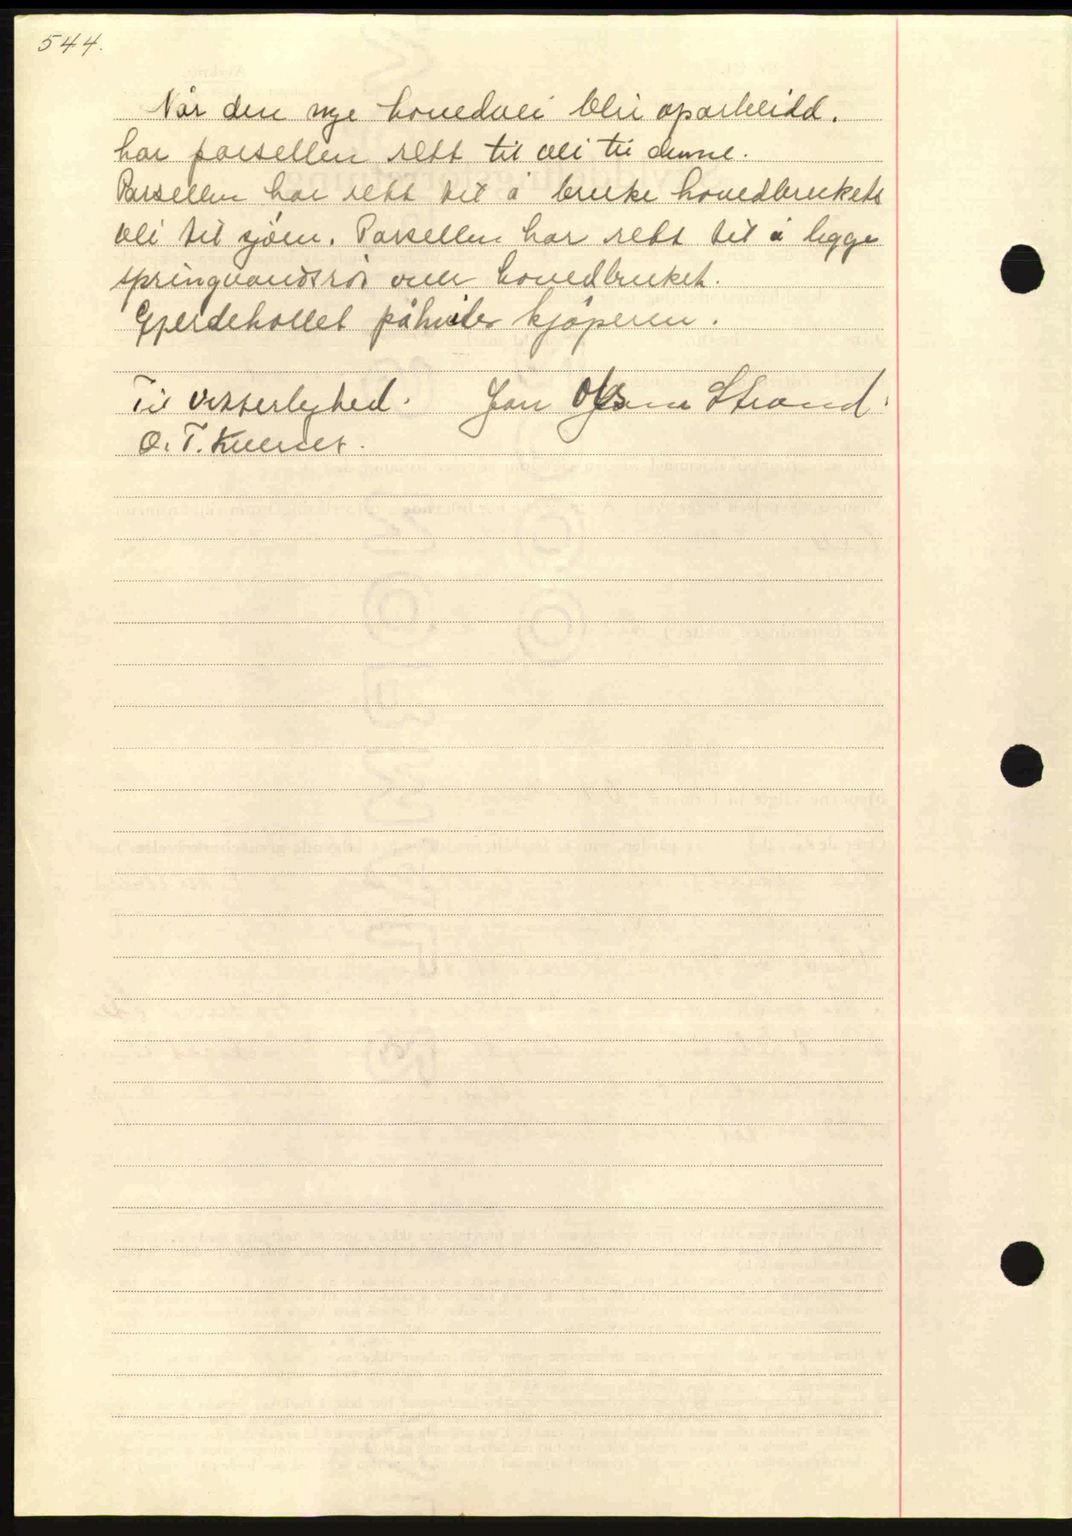 544.
Når den nye hovedvei blir oparbeidd.
har parsellen rett til vei til denne.
Parsellen har rett til å bruke hovedbrukets
vei til sjöen. Parsellen har rett til å legge
springvandsrör over hovedbruket.
Gjerdehollet påhviler kjöperen.
Til vitterlighed. Jon Strand.
O. T.